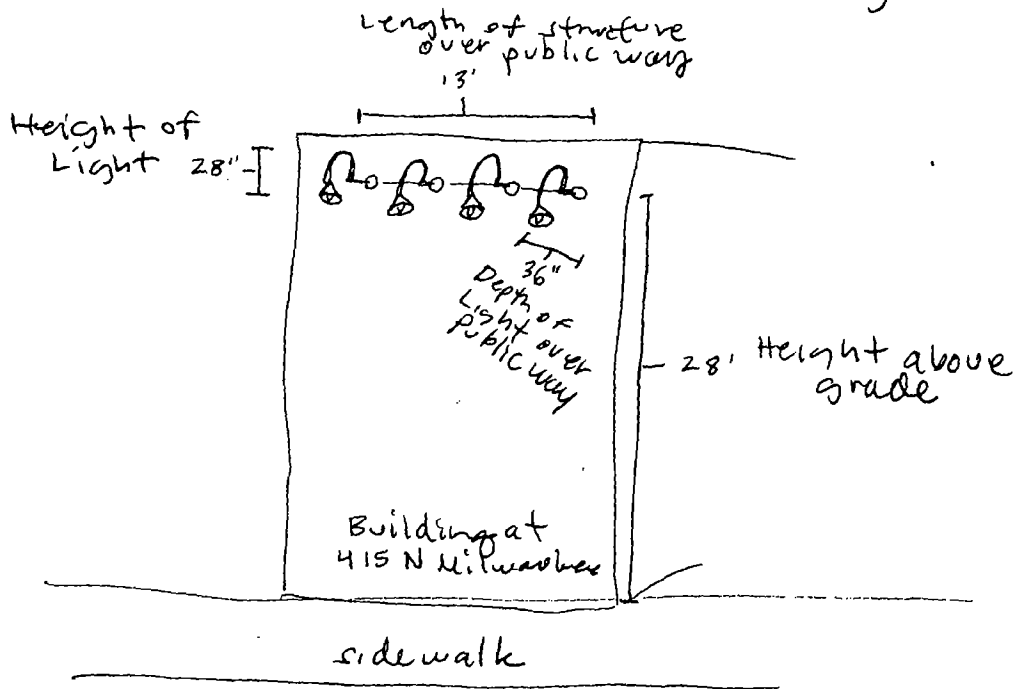 Length of structure
over public way
13'
Height of
Light 28"
36"
Depth of
Light over
public way
28' Height above
grade
Building at
415 N Milwaukee
sidewalk